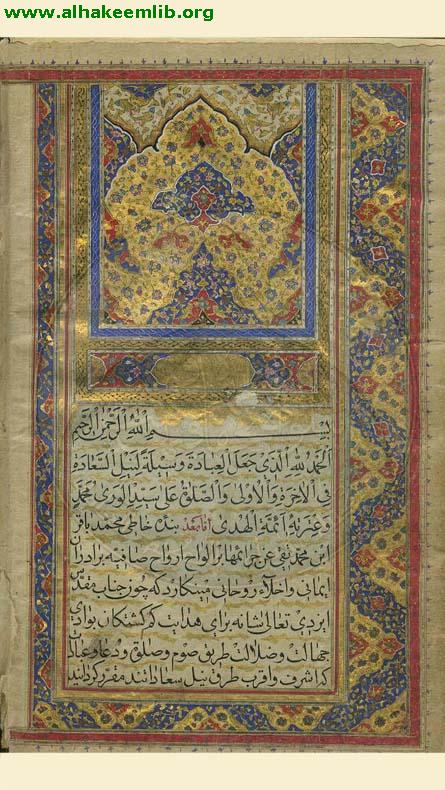 www.alhakeemlib.org
بِسْمِ اللهِ الرَّحْمٰنِ الرَّحِيمِ
اَلْحَمْدُ لِلّٰهِ الَّذِي جَعَلَ الْعِبَادَةَ وَسِيلَةً لِنَيْلِ السَّعَادَةِ
فِي الْآخِرَةِ وَالْأُولٰى وَالصَّلٰوةُ عَلٰى سَيِّدِ الْوَرٰى مُحَمَّدٍ
وَعِتْرَتِهِ اَئِمَّةِ الْهُدٰى اما بعد بنده خاطی محمد باقر
ابن محمد تقی عفی عن جرائمهما بر الواح ارواح صافیه برادران
ایمانی و اخلاء روحانی مینکارد که چون جناب مقدس
ایزدی تعالی شانه برای هدایت کم کشتکان بوادی
جهالت و ضلالت طریق صوم و صلوة و دعا و عبادات
که اشرف و اقرب طرق نیل سعاداتند مقرر کردانید